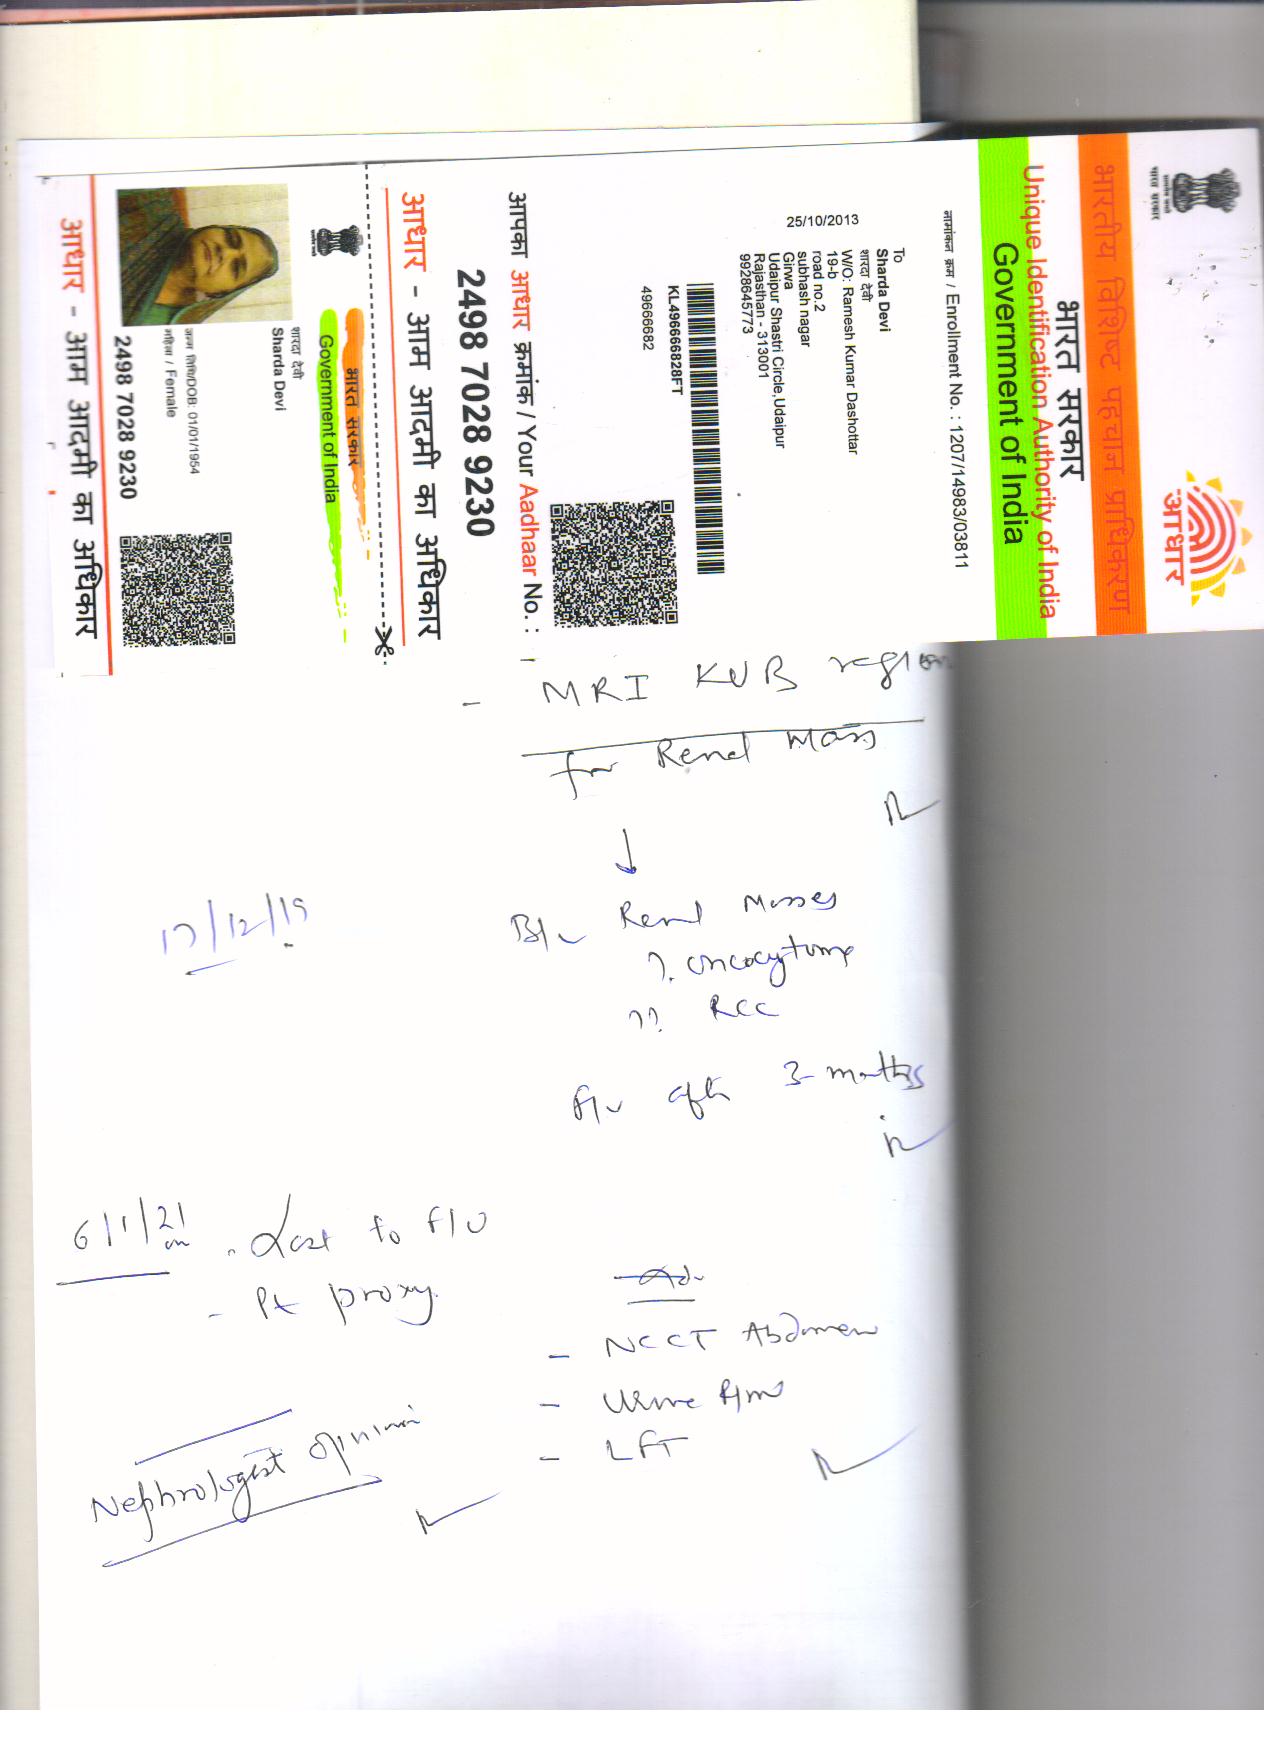 भारतीय विशिष्ट पहचान प्राधिकरण
भारत सरकार
Unique Identification Authority of India
Government of India
आधार
नामांकन क्रम / Enrollment No. : 1207/14983/03811
To
Sharda Devi
शारदा देवी
W/O: Ramesh Kumar Dashottar
19-b
road no.2
subhash nagar
Girwa
Udaipur Shastri Circle,Udaipur
Rajasthan - 313001
9928645773
25/10/2013
KL496666828FT
49666682
आपका आधार क्रमांक / Your Aadhaar No. :
2498 7028 9230
आधार - आम आदमी का अधिकार
भारत सरकार
Government of India
शारदा देवी
Sharda Devi
जन्म तिथि/DOB: 01/01/1954
महिला / Female
2498 7028 9230
आधार - आम आदमी का अधिकार
- MRI KUB region
for Renal Mass
↓
17/12/19
B/L Renal Masses
?. oncocytoma
?? RCC
F/U after 3-months
6/1/21
- Lost to F/U
- Pt proxy
Adv
- NCCT Abdomen
- Urine R/M
- LFT
Nephrologist opinion